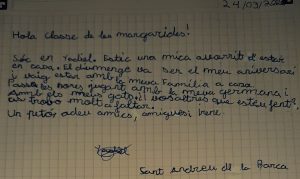 24/03/20
Hola classe de les margarides!
Sóc en Yastiel. Estic una mica avorrit d'estar
en casa. El diumenge va ser el meu aniversari
i vaig estar amb la meva família a casa
jugant amb la meva germana i
amb els meus gatets! vosaltres que esteu fent?
us trobo molt a faltar.
Un petó adeu amics, amigues i Irene.
Sant Andreu de la Barca